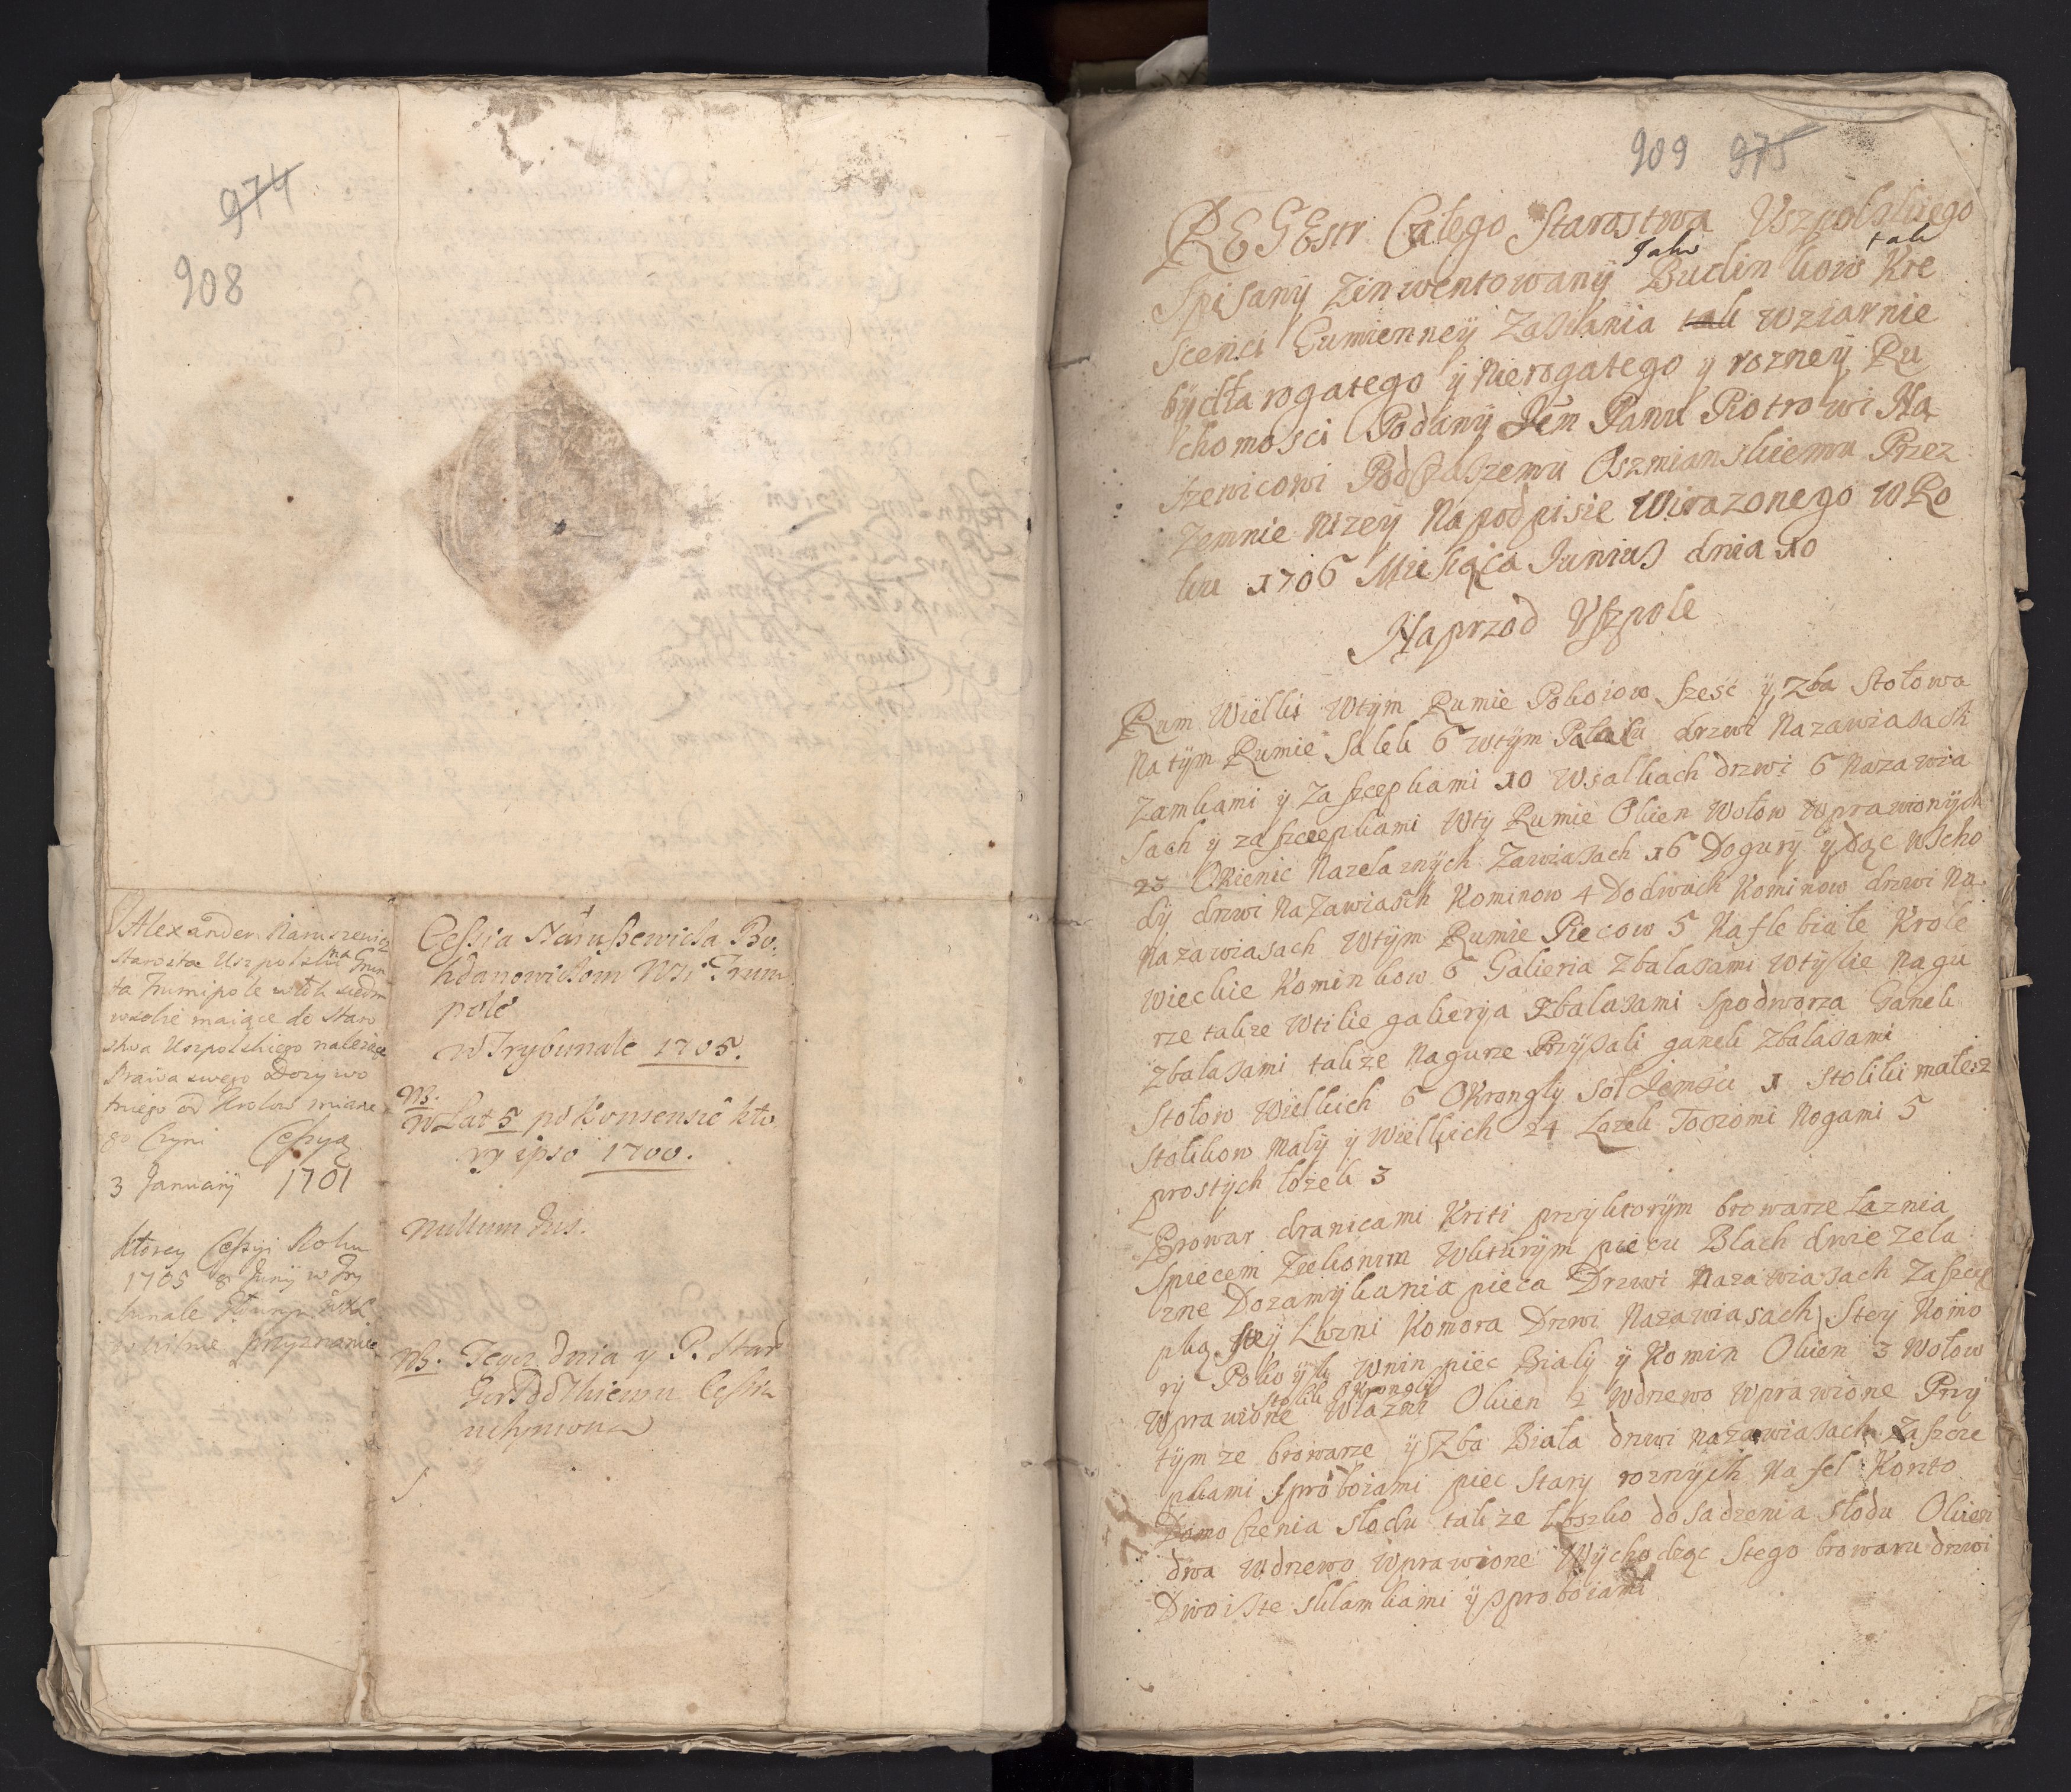 974
908
Alexander Naruszewicz
Starosta Uszpolski na Grun
ta Trumpole włók siedm
wsobie maiące do Staro
stwa Uszpolskiego należące
Prawa swego Dożywo
tniego od Krolow miane
go Czyni Cessyą
3 January 1701
Ktorey Cessyi Roku
1705 8 Juny w Try
bunale
Wilnie przyznanie
Cessia Narussewicza Bo
hdanowiczom Wsi Trum
pole
w Trybunale 1705.
NB.
w Lat 5 po Konsensie kto
ry ipso 1700.
nullum Ius.
NB. Tegoż dnia y P. Star
Cessia
uczyniona
909 975
REGEstr Całego Starostwa Uszpolskiego
Spisany Zinwentowany Jako Budinkow tak Kre
scenci Gumienney Zasiania tak wziarnie
bydła rogatego y Nierogatego y rozney Ru
chomosci Podany Jem Panu Piotrowi Na
szewicowi Podstaszemu Oszmianskiemu Przez
Zemnie nizey Napodpisie Wirazonego WRo
ku 1706 Miesiąca Junius dnia 10
Naprzod Uszpole
Rum Wielki Wtym Rumie Pokoiow sześć y Zba Stołowa
Natym Rumie Salek 6 wtym Pałacu drzwi Nazawiasach
Zamkami y Zaszczepkami 10 Wsalkach drzwi 6 Nazawia
sach y zaszczepkami Wty Rumie Okien Wołow Wprawionych
23 Okienic Nazelaznych Zawiasach 16 Dogury ydąc wscho
dy drzwi NaZawiasch Kominow 4 Dodwuch Kominow drzwi Na
Nazawiasach Wtym Rumie Piecow 5 Kafle białe Krole
wieckie Kominkow 6 Galieria Zbalasami Wtylie Nagu
rze takze Wtilie galierya Zbalasami Spodworza Ganek
Zbalasami takze Nagurze Przysali ganek Zbalasami
Stołow Wielkich 6 Okrongly Soł Jemsci 1 Stoliki małesz
Stolikow Maly y Wielkich 24 Lozek Toczomi Nogami 5
prostych łożek 3
Browar dranicami Kriti przyktorym browarze Łaznia
Spiecem Zielionim Wkturym piecu Blach dwie zela
zne Dozamykania pieca Drzwi Nazawiasach Zaszczep
ką Stey Lazni Komora Drzwi Nazawiasach Stey Komo
ry Pokoyk Wnin piec Biały y Komin Okien 3 Wołow
Wprawione Stolik Okrongly Włazni Okien 2 Wdrzewo Wprawione Przy
tym ze browarze y Zba Biała drzwi nazawiasach Zaszcze
pkami Sproboiami piec Stary roznych Kafel Korito
Domoczenia słodu takze Łoszko do sadzenia słodu Okien
dwa Wdrzewo Wprawione Wychodząc Stego browaru drzwi
Dwoiste sklamkami y Sproboiami